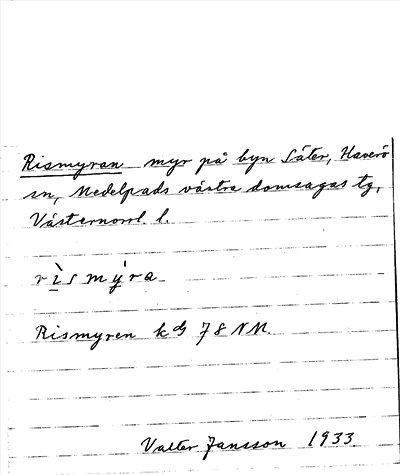 Rismyran myr på byn Säter, Haverö
sn, Medelpads västra domsagas tg,
Västernorrl. l.
rìsmýra
Rismyren kbl 78 NM.
Valter Jansson 1933